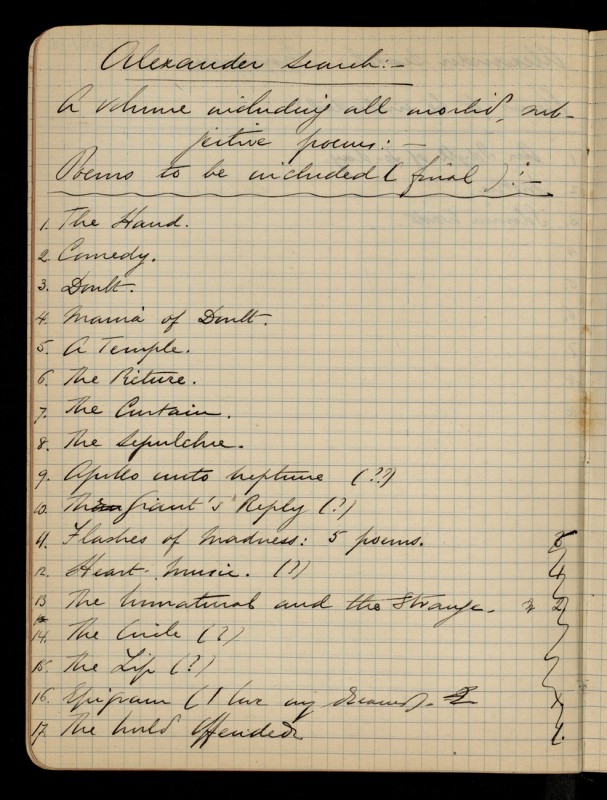 Alexander Search:–
A volume including all morbid, sub-
jective poems:–
Poems to be included (final):–
1. The Hand.
2. Comedy.
3. Doubt.
4. Mania of Doubt.
5. A Temple.
6. The Picture.
7. The Curtain.
8. The Sepulchre.
9. Apollo unto Neptune (??)
10. The Giant's Reply (?)
11. Flashes of Madness: 5 poems.
12. Heart-Music. (?) 4
13 The Unnatural and the Strange. 2
14. The Circle (?)
15. The Lip (?)
16. Epigram (I love my dreams).
17. The World Offended